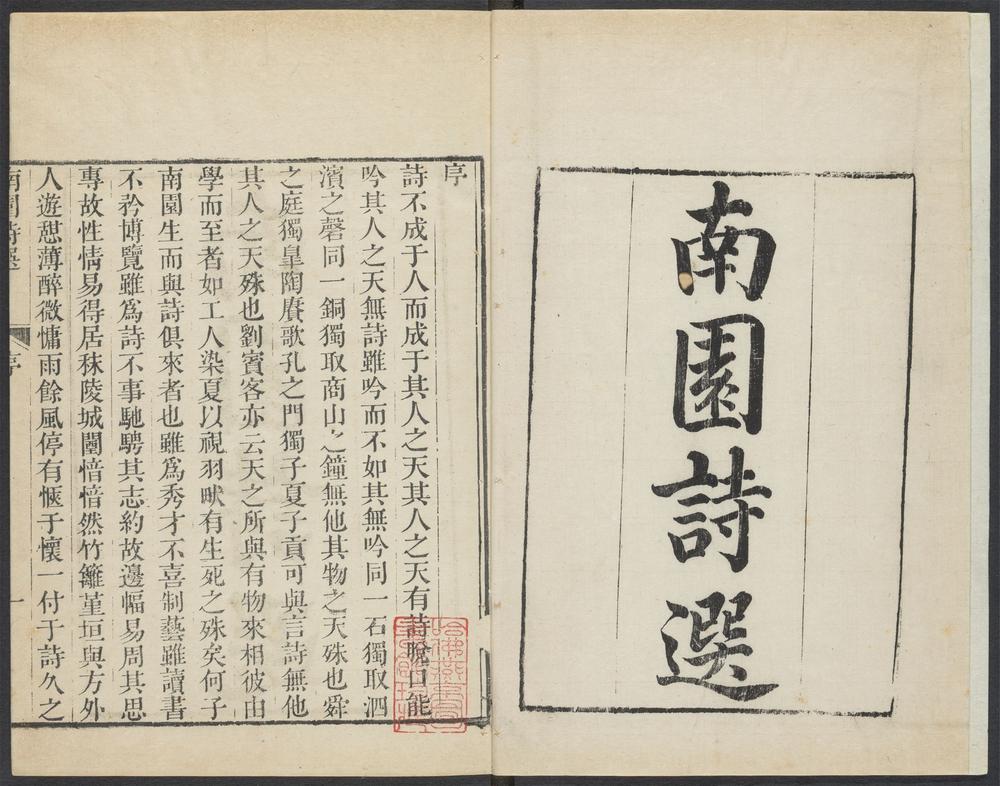 南園詩選
序
詩不成于人而成于其人之天其人之天有詩脫口能
吟其人之天無詩雖吟而不如其無吟同一石獨取泗
濱之磬同一銅獨取商山之鐘無他其物之天殊也舜
之庭獨皇陶賡歌孔之門獨子夏子貢可與言詩無他
其人之天殊也劉賓客亦云天之所與有物來相彼由
學而至者如工人染夏以視羽畎有生死之殊矣何子
南園生而與詩俱來者也雖爲秀才不喜制藝雖讀書
不矜博覽雖爲詩不事馳騁其志約故邊幅易周其思
專故性情易得居秣陵城闉愔愔然竹籬堇垣與方外
人遊憇薄醉微慵雨餘風停有愜于懷一付于詩久之
南園詩選 序 一